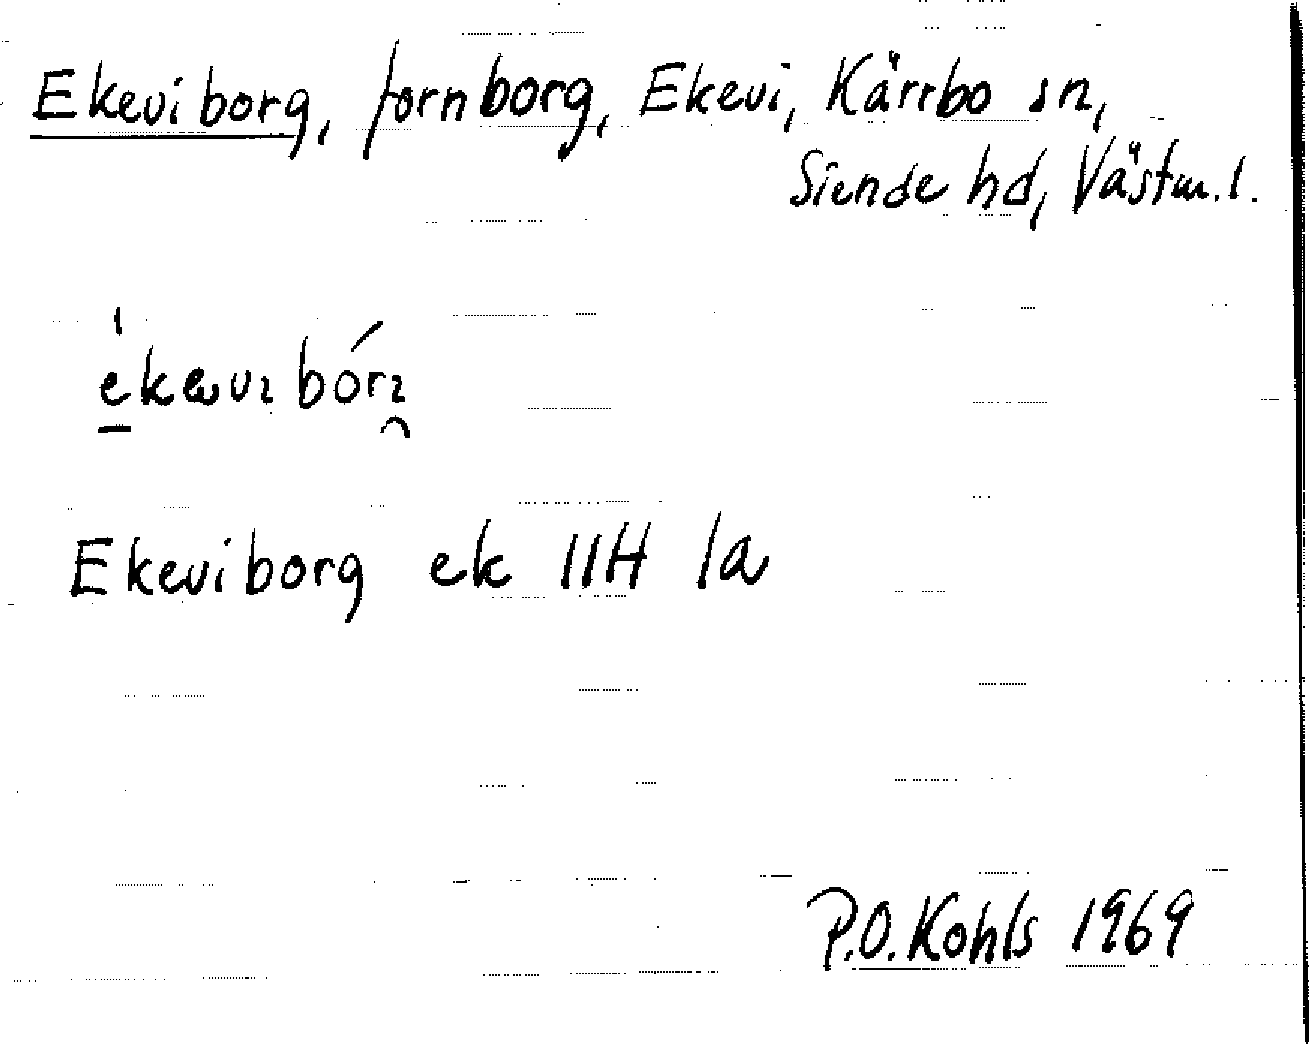 Ekeviborg, fornborg, Ekevi, Kärrbo sn,
Siende hd, Västm. l.
Ekeviborg ek 11H 1a
P.O. Kohls 1969